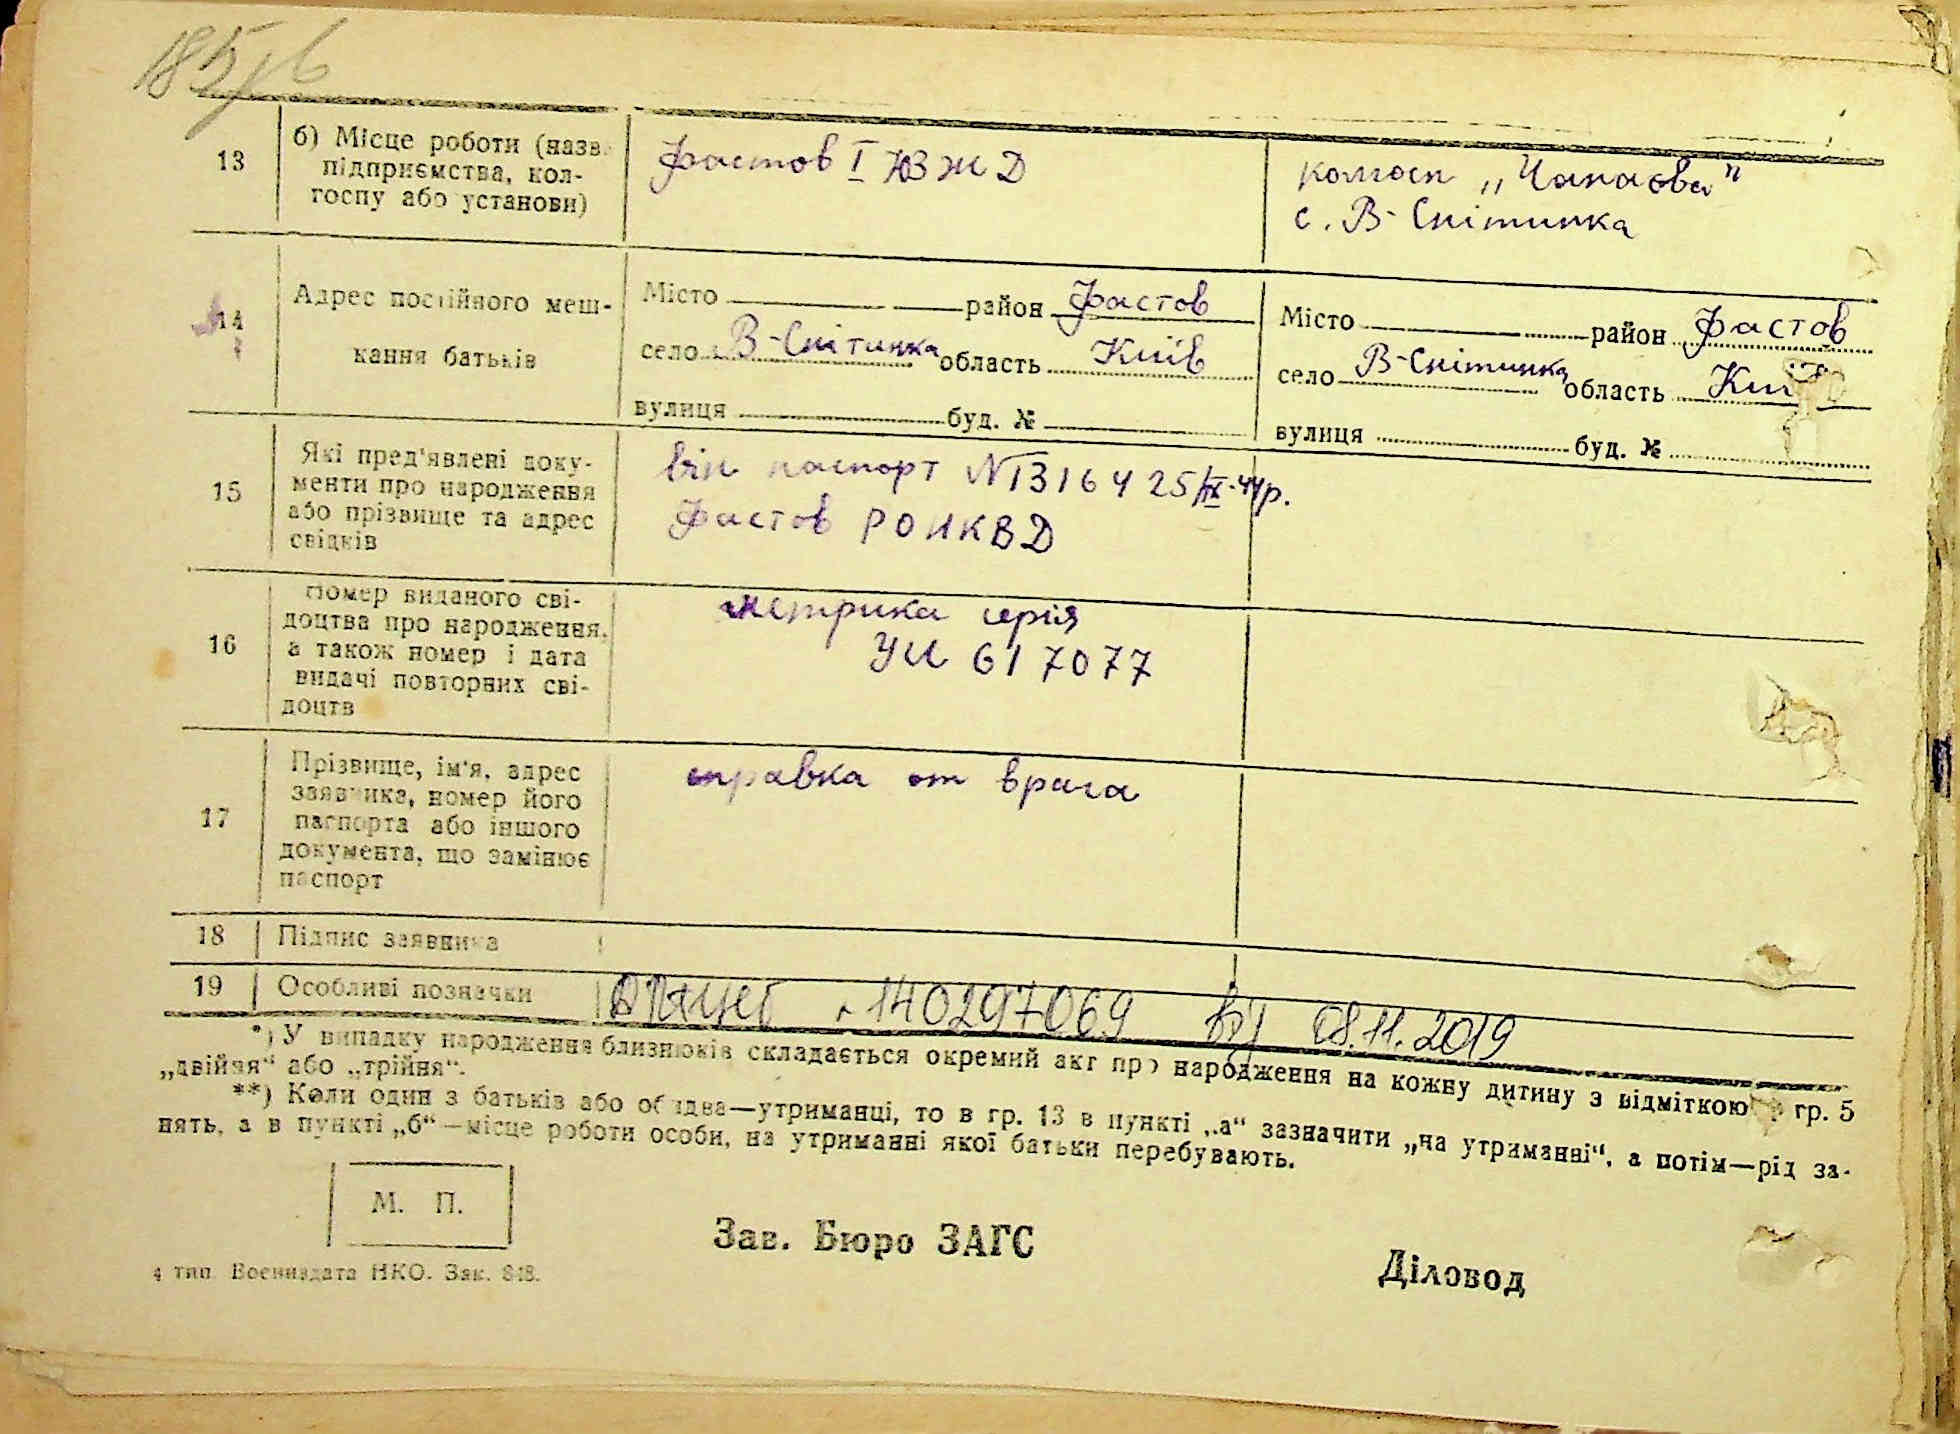 185/6
13 б) Місце роботи (назв. Фастов I ЮЗЖД колгосп „Чапаєва"
підприємства, кол- с. В-Снітинка
госпу або установи)
14 Адрес постійного меш- Місто район Фастов Місто район Фастов
кання батьків село В-Снітинка область Київ село В-Снітинка область Київ
вулиця буд. № вулиця буд. №
15 Які пред'явлені доку- він паспорт № 13164 25/IX-44р.
менти про народження Фастов РОНКВД
або прізвище та адрес
свідків
16 Номер виданого сві- метрика серія
доцтва про народження, УИ 617077
а також номер і дата
видачі повторних сві-
доцтв
17 Прізвище, ім'я, адрес справка от врача
заявника, номер його
паспорта або іншого
документа, що замінює
паспорт
18 Підпис заявника
19 Особливі позначки 140297069 від 08.11.2019
*) У випадку народження близнюків складається окремий акт про народження на кожну дитину з відміткою в гр. 5
„двійня“ або „трійня“.
**) Коли один з батьків або обидва—утриманці, то в гр. 13 в пункті „а“ зазначити „на утриманні“, а потім—рід за-
нять, а в пункті „б“—місце роботи особи, на утриманні якої батьки перебувають.
М. П.
Зав. Бюро ЗАГС
Діловод
4 тип. Воениздата НКО. Зак. 848.